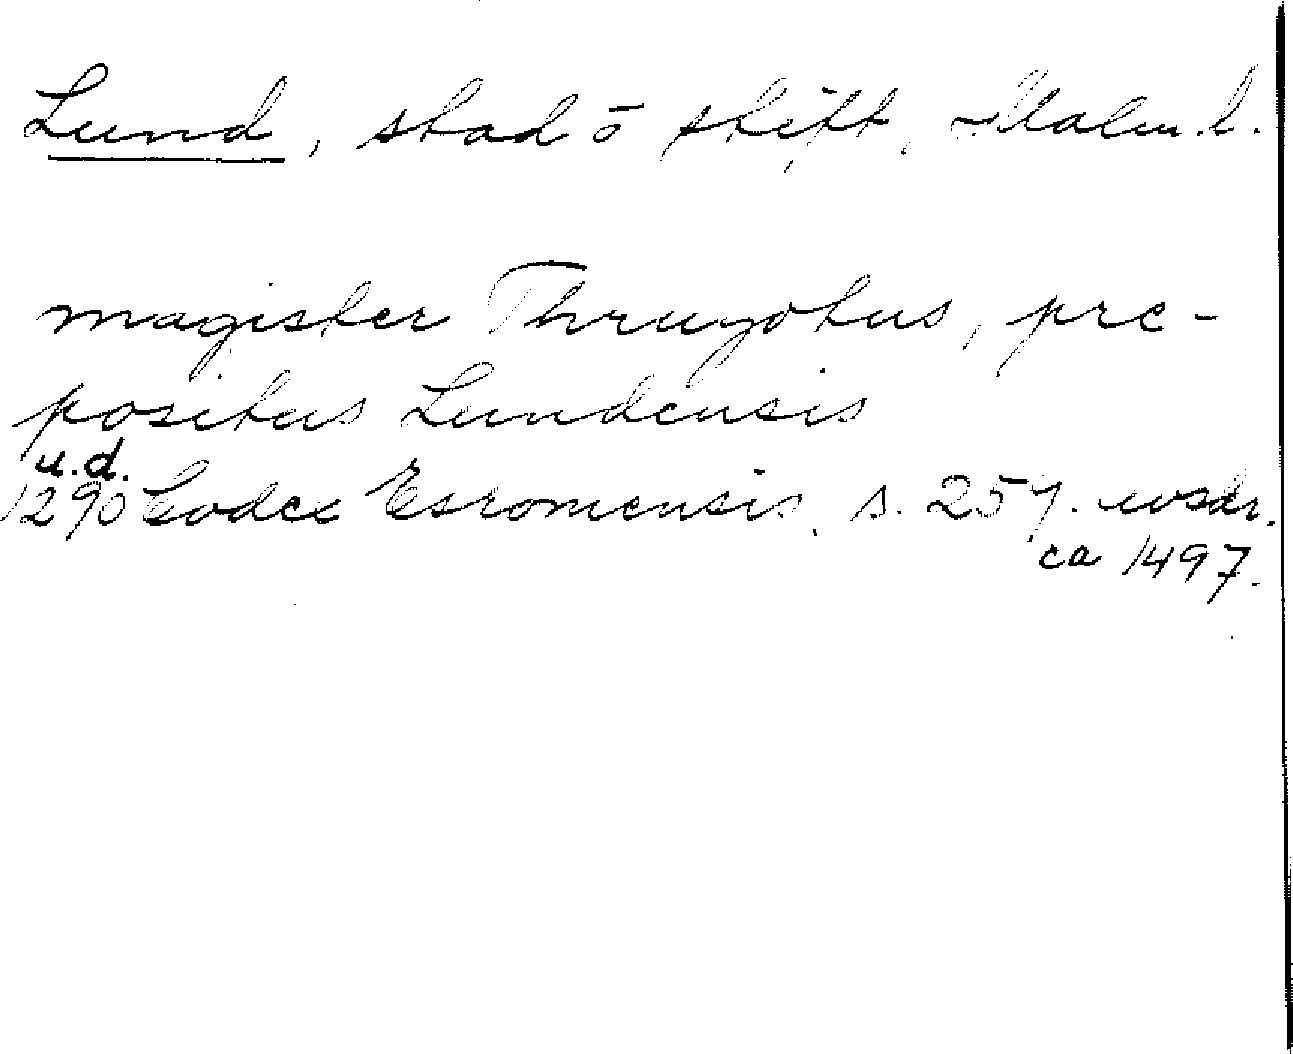 Lund, stad o skift, Malm. l.
magister Thrugotus, pre-
positus Lundensis
u.d.
1290 Codex Esromensis, s. 257. avskr.
ca 1497.